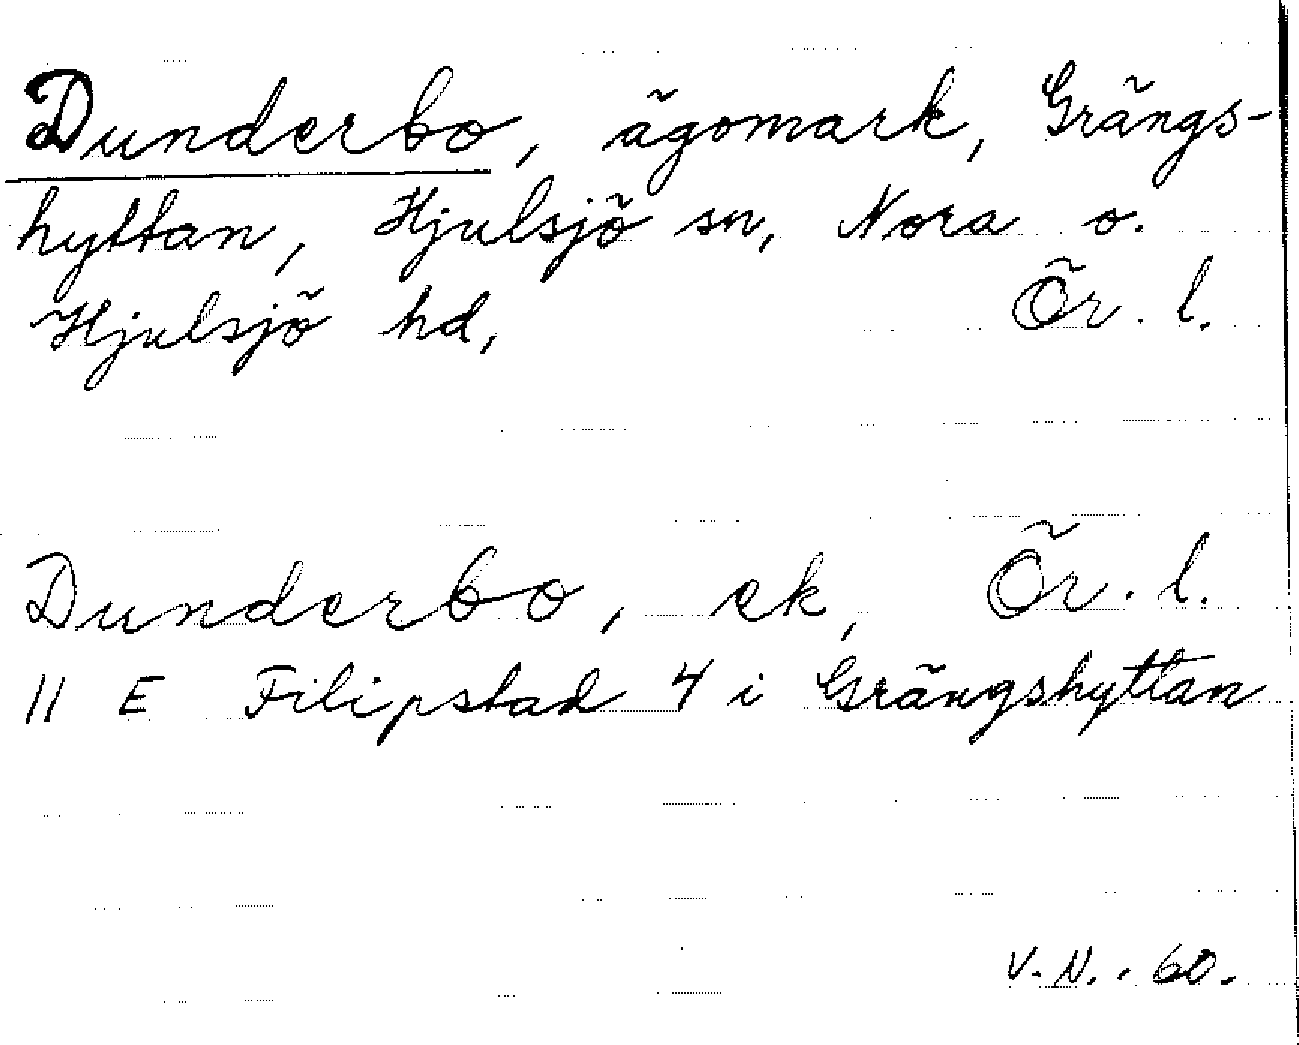 Dunderbo, ägomark, Grängs-
hyttan, Hjulsjö sn, Nora o.
Hjulsjö hd, Ör. l.
Dunderbo, ek, Ör. l.
11 E Filipstad 4 i Grängshyttan
V.N. . 60.